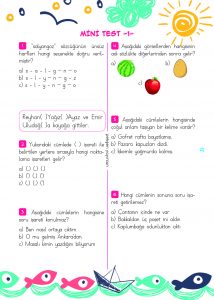 MİNİ TEST -1-
1. "salyangoz" sözcüğünün ünsüz
harfleri hangi seçenekte doğru veril-
miştir?
a) s - a - l - y - n - g - o
b) s - l - y - n - g - z
c) s - l - y - g - n - o
Reyhan( )Yağız( )Ayaz ve Emir
Uludağ( )a kayağa gittiler.
2. Yukarıdaki cümlede ( ) işareti ile
belirtilen yerlere sırasıyla hangi nokta-
lama işaretleri gelir?
3. Aşağıdaki cümlelerin hangisine
soru işareti konulmaz?
a) Ben nasıl ortaya çıktım
b) O mu gelmiş Ankara'dan
c) Masalı kimin yazdığını biliyorum
4. Aşağıdaki görsellerden hangisinin
adı sözlükte diğerlerinden sonra gelir?
a)
b)
c)
5. Aşağıdaki cümlelerin hangisinde
çoğul anlam taşıyan bir kelime vardır?
a) Gofret rafta bayatlamış.
b) Pazara kapıdan daldı.
c) İkbal yağmurda kalmış.
6. Hangi cümlenin sonuna soru işa-
reti getirilmez?
a) Çantanın içinde ne var
b) Bakkaldan üç paket mi aldık
c) Kaplumbağa olduklukları aldı